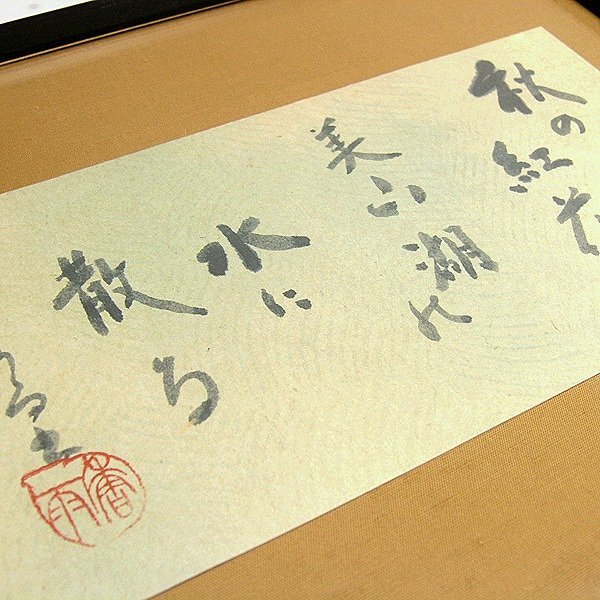 秋の紅葉
美い湖の
水に
散る